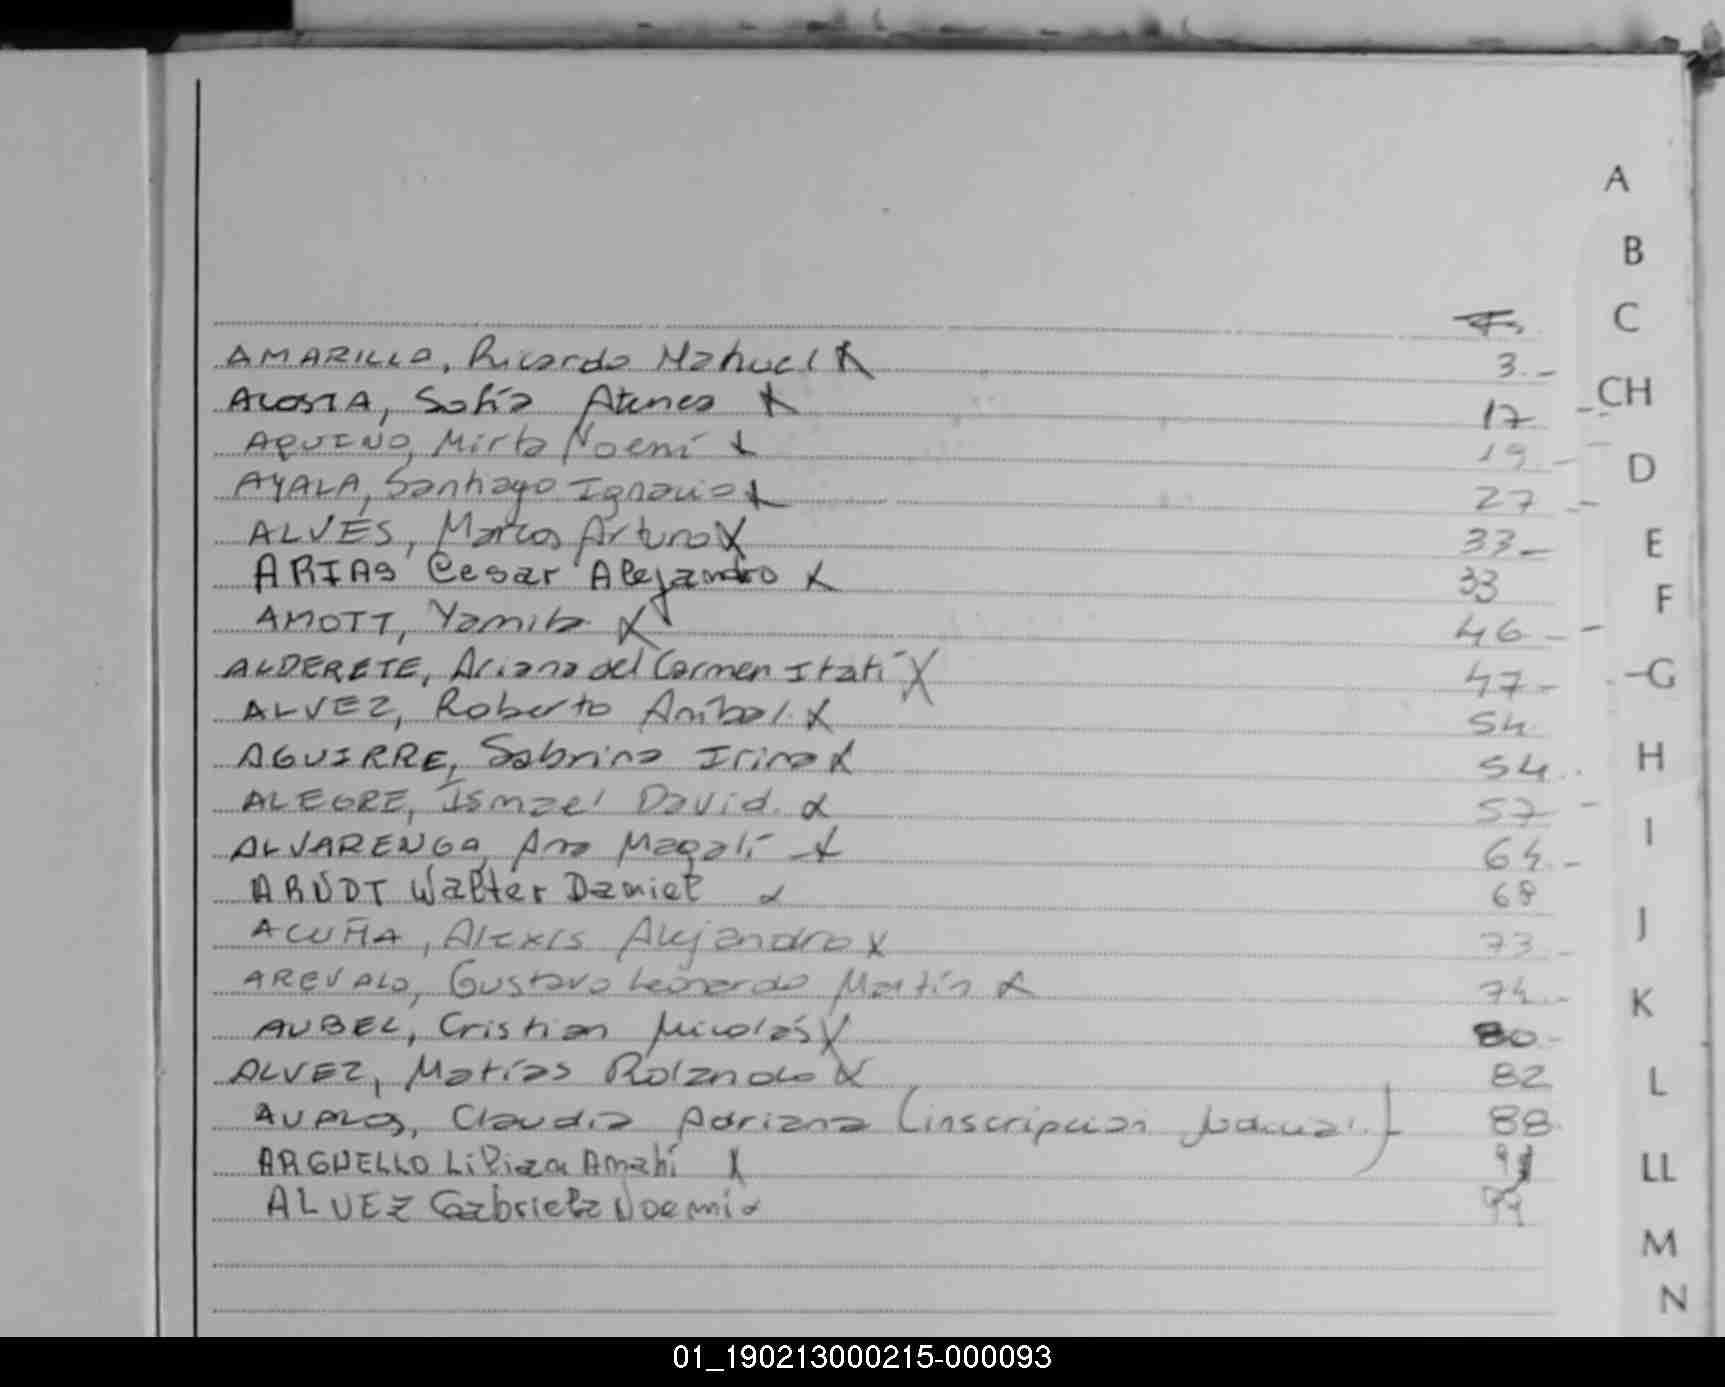 F.
AMARILLO, Ricardo Mahuel X 3.-
ACOSTA, Sofía Atenea X 17 -
AQUINO, Mirta Noemí X 19.-
AYALA, Santiago Ignacio X 27 -
ALVES, Marcos Arturo X 33-
ARIAS Cesar Alejandro X 33
AMOTT, Yamila X 46 -
ALDERETE, Ariana del Carmen Itatí X 47-
ALVEZ, Roberto Anibal. X 54
AGUIRRE, Sabrina Irina X 54.
ALEGRE, Ismael David. X 57 -
ALVARENGA, Ana Magalí X 64.-
ARNDT Walter Daniel X 68
ACUÑA, Alexis Alejandro X 73 -
AREVALO, Gustavo Leonardo Martín X 74.-
AUBEL, Cristian Nicolás X 80-
ALVEZ, Matías Rolando X 82
AVALOS, Claudia Adriana (inscripcion judicial.) 88
ARGUELLO Liliana Amahí X
ALVEZ Gabriela Noemi X
A
B
C
CH
D
E
F
G
H
I
J
K
L
LL
M
N
01_190213000215-000093